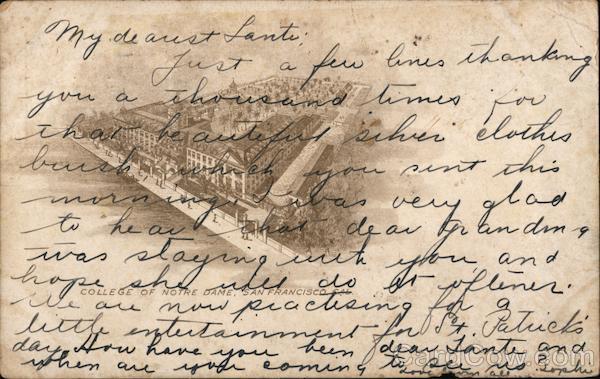 My dearest Tante;
Just a few lines thanking
you a thousand times for
that beautiful silver clothes
brush which you sent this
morning. I was very glad
to hear that dear Grandma
was staying with you and
hope she will do it oftener.
COLLEGE OF NOTRE DAME, SAN FRANCISCO
We are now practising for a
little entertainment for St. Patrick's
day. How have you been dear Tante and
when are you coming to see us
love from all Sophie
CardCow.com